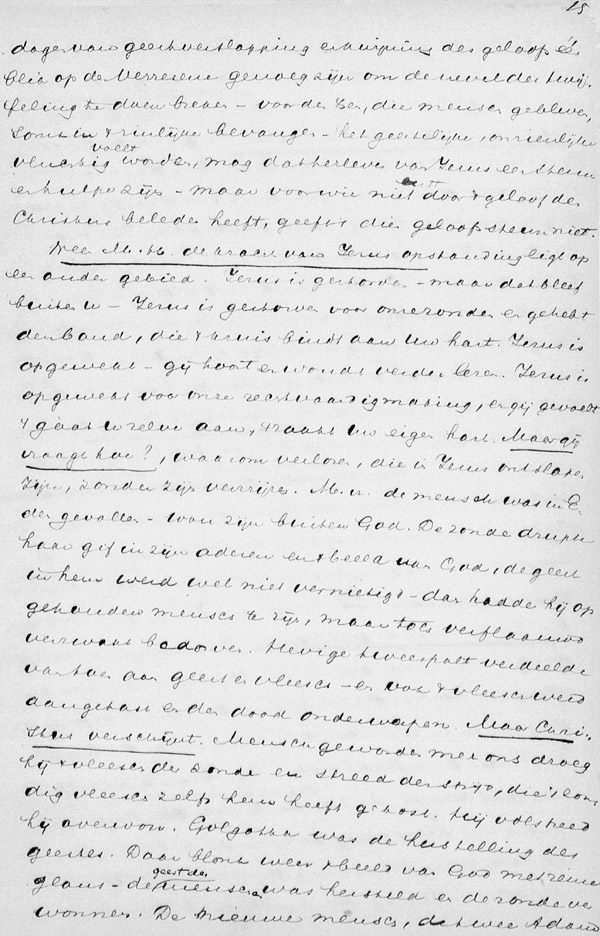 15
dagen van geestverslapping en kwijning des geloofs één
blik op de Verrezene genoeg zijn om de nevel der twij-
feling te doen breken – voor den Jer, die mensch gebleven,
soms in 't zinlijke bevangen – het geestelijke, onzienlijke
vluchtig voelt worden, mag dat herleven van Jezus een steun
en hulpe zijn – maar voor wie niet eerst door 't geloof den
Christus beleden heeft, geeft dit geloof steun niet.
Neen M. H. de kracht van Jezus opstanding ligt op
een ander gebied. Jezus is gestorven – maar dat bleef
buiten u – Jezus is gestorven voor onze zonden en gehebt
den band, die 't kruis bindt aan uw hart. Jezus is
opgewekt – gij hoort er wondt verder leven. Jezus is
opgewekt voor onze rechtvaardigmaking, en gij gevoelt
't gaat u zelve aan, 't raakt uw eigen hart. Maar gij
vraagt hoe?, waarom verloren, die in Jezus ontslapen
zijn, zonder zijn verrijzen. M. H. de mensch was in E-
den gevallen – was zijn buiten God. De zonde drupte
haar gif in zijn aderen en 't beeld van God, de geest
in hem werd wel niet vernietigd – dan hadde hij op
gehouden mensch te zijn, maar toch verflaauwd
verzwakt bedorven. Hevige tweespalt verdeelde
van toen aan geest en vleesch – en ook 't vleesch werd
aangetast en den dood onderworpen. Maar Chri-
stus verschijnt. Mensch geworden met ons droeg
hij 't vleesch der zonde en streed den strijd, die 't zon-
dig vleesch zelfs hem heeft gekost. Hij volstreed
hij overwon. Golgotha was de herstelling des
geestes. Daar blonk weer 't beeld van God met reine
glans – de geest des menschen was hersteld en de zonde ver
wonnen. De nieuwe mensch, de tweede Adam